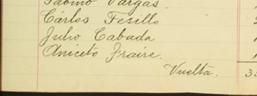 Vargas.
Carlos Fesillo
Julio Cabada
Aniceto Fraire.
Vuelta.